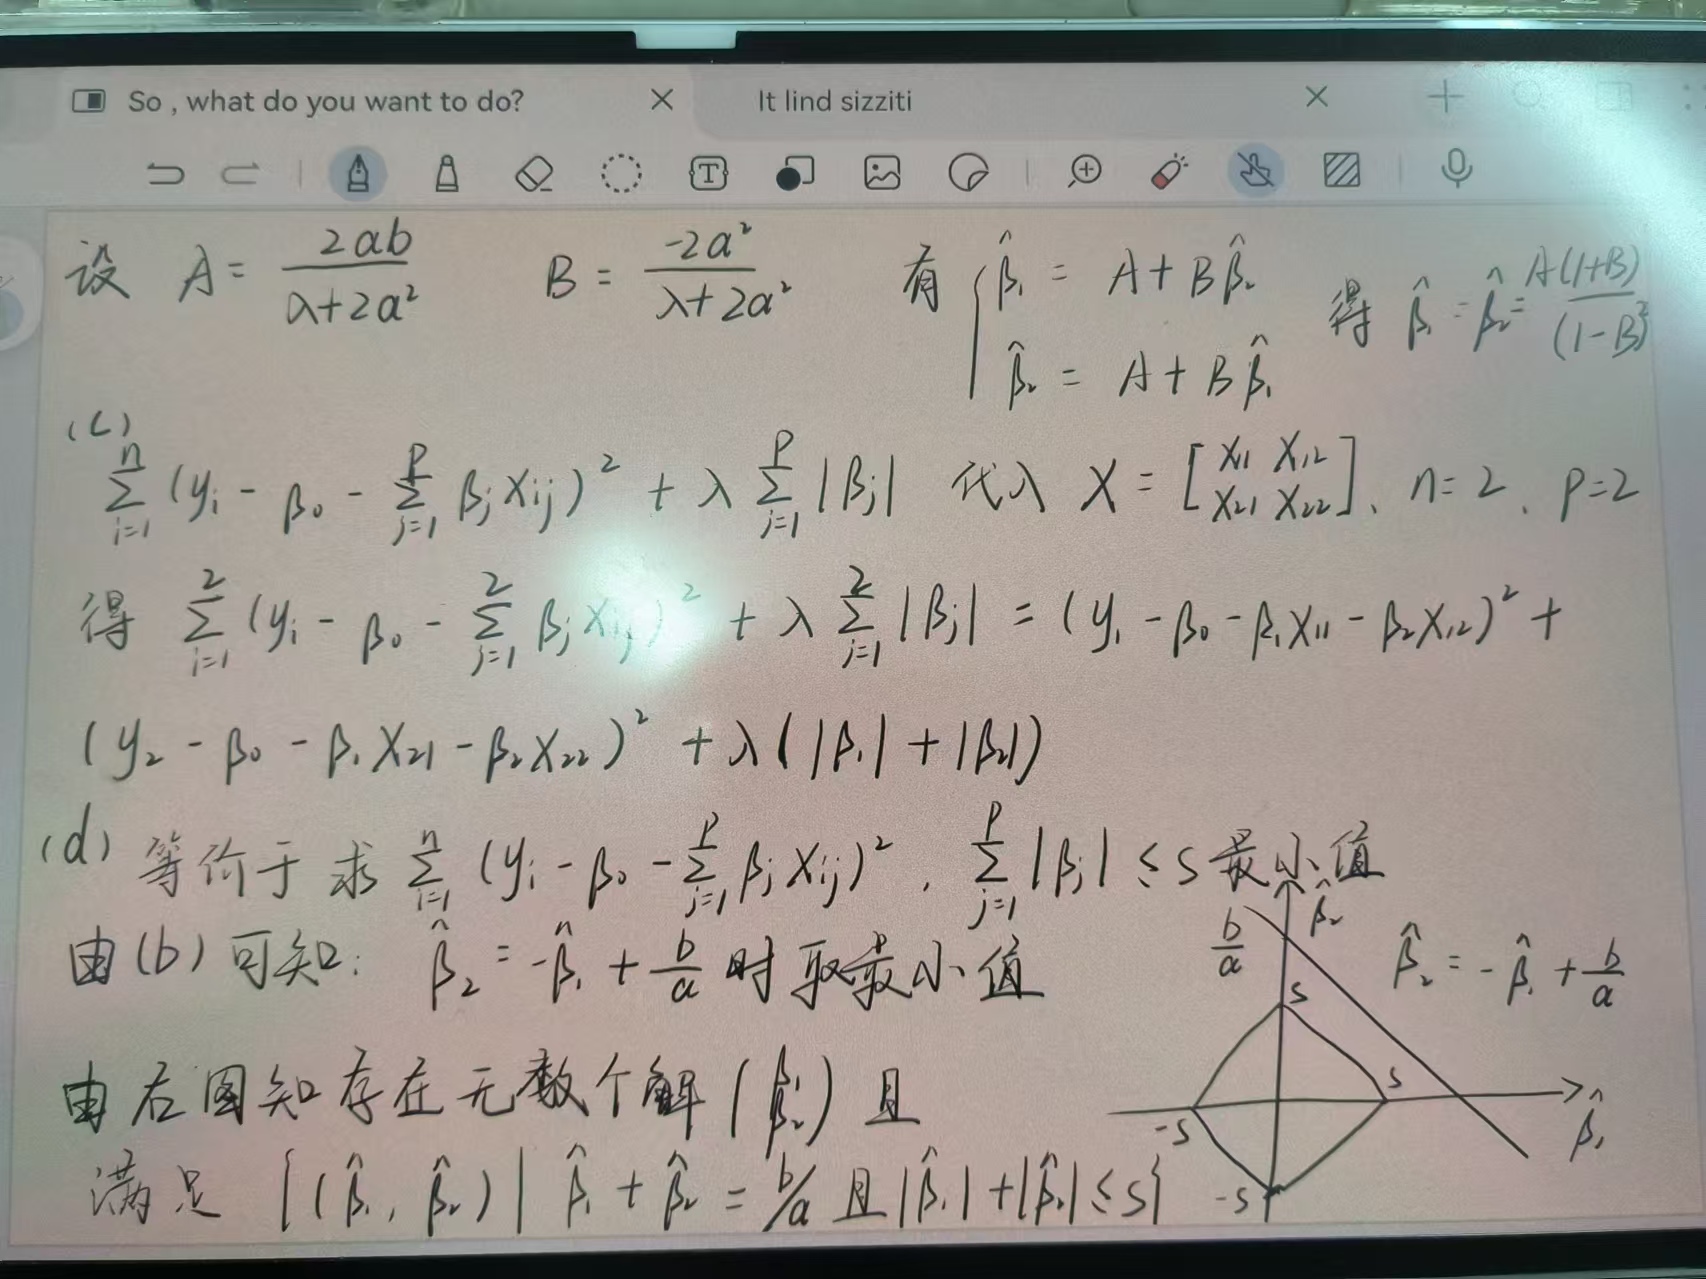 So , what do you want to do?
It lind sizziti
设 A = 2ab/(λ+2a²) B = -2a²/(λ+2a²) 有 { β̂₁ = A + Bβ̂₂ 得 β̂₁ = β̂₂ = A(1+B)/(1-B)²
β̂₂ = A + Bβ̂₁
(c)
∑_{i=1}^{n} (yᵢ - β₀ - ∑_{j=1}^{p} βⱼxᵢⱼ)² + λ ∑_{j=1}^{p} |βⱼ| 代入 X = [x₁₁ x₁₂; x₂₁ x₂₂]、n=2、p=2
得 ∑_{i=1}^{2} (yᵢ - β₀ - ∑_{j=1}^{2} βⱼxᵢⱼ)² + λ ∑_{j=1}^{2} |βⱼ| = (y₁ - β₀ - β₁x₁₁ - β₂x₁₂)² +
(y₂ - β₀ - β₁x₂₁ - β₂x₂₂)² + λ(|β₁| + |β₂|)
(d) 等价于求 ∑_{i=1}^{n} (yᵢ - β₀ - ∑_{j=1}^{p} βⱼxᵢⱼ)², ∑_{j=1}^{p} |βⱼ| ≤ s 最小值
由(b)可知: β̂₂ = -β̂₁ + b/a 时取最小值
由右图知存在无数个解 (β̂₁; β̂₂) 且
满足 {(β̂₁, β̂₂) | β̂₁ + β̂₂ = b/a 且 |β̂₁| + |β̂₂| ≤ s}
β̂₂
b/a
β̂₂ = -β̂₁ + b/a
s
s
-s
β̂₁
-s